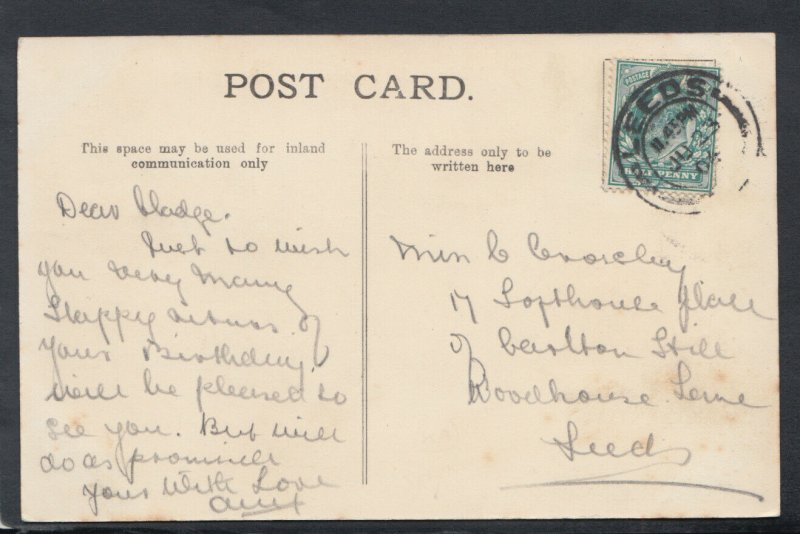 POST CARD.
This space may be used for inland
communication only
The address only to be
written here
POSTAGE
HALFPENNY
LEEDS
11.45 PM
Dear Madge.
Just to wish
you very many
Happy returns of
your Birthday.
will be pleased to
see you. But will
do as promised
yours With Love
Miss C Crossley
17 Lofthouse Place
of Carlton Hill
Woodhouse Lane
Leeds